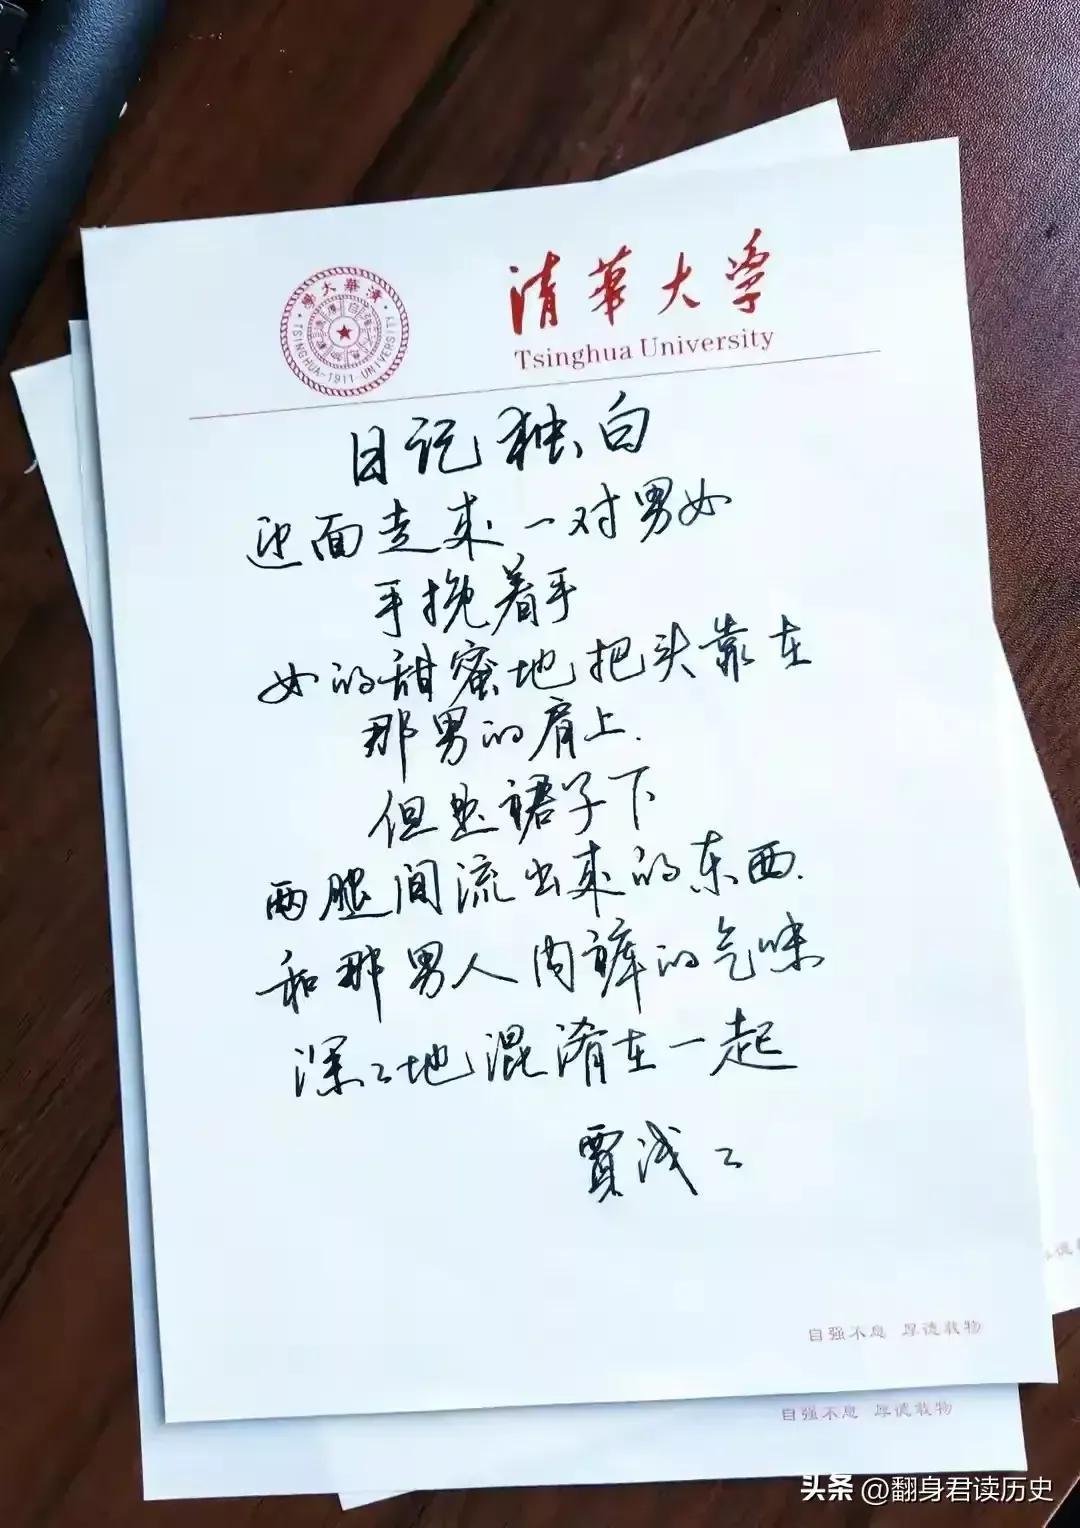 清華大學
Tsinghua University
清華大學
TSINGHUA-1911-UNIVERSITY
日记独白
迎面走来一对男女
手挽着手
女的甜蜜地把头靠在
那男的肩上.
但是裙子下
两腿间流出来的东西.
和那男人内裤的气味
深々地混淆在一起
贾浅々
自强不息 厚德载物
自强不息 厚德载物
头条 @翻身君读历史